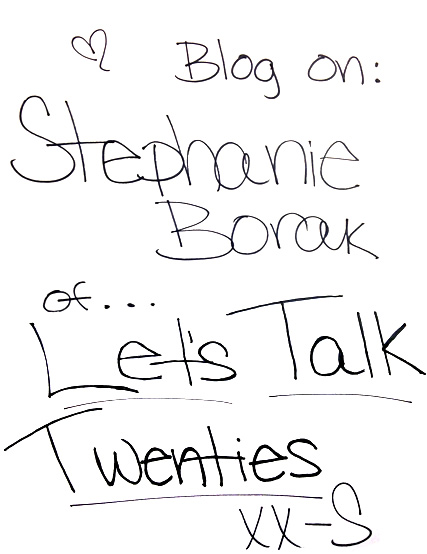 ♡ Blog on:
Stephanie
Borak
of...
Let's Talk
Twenties
xx-S